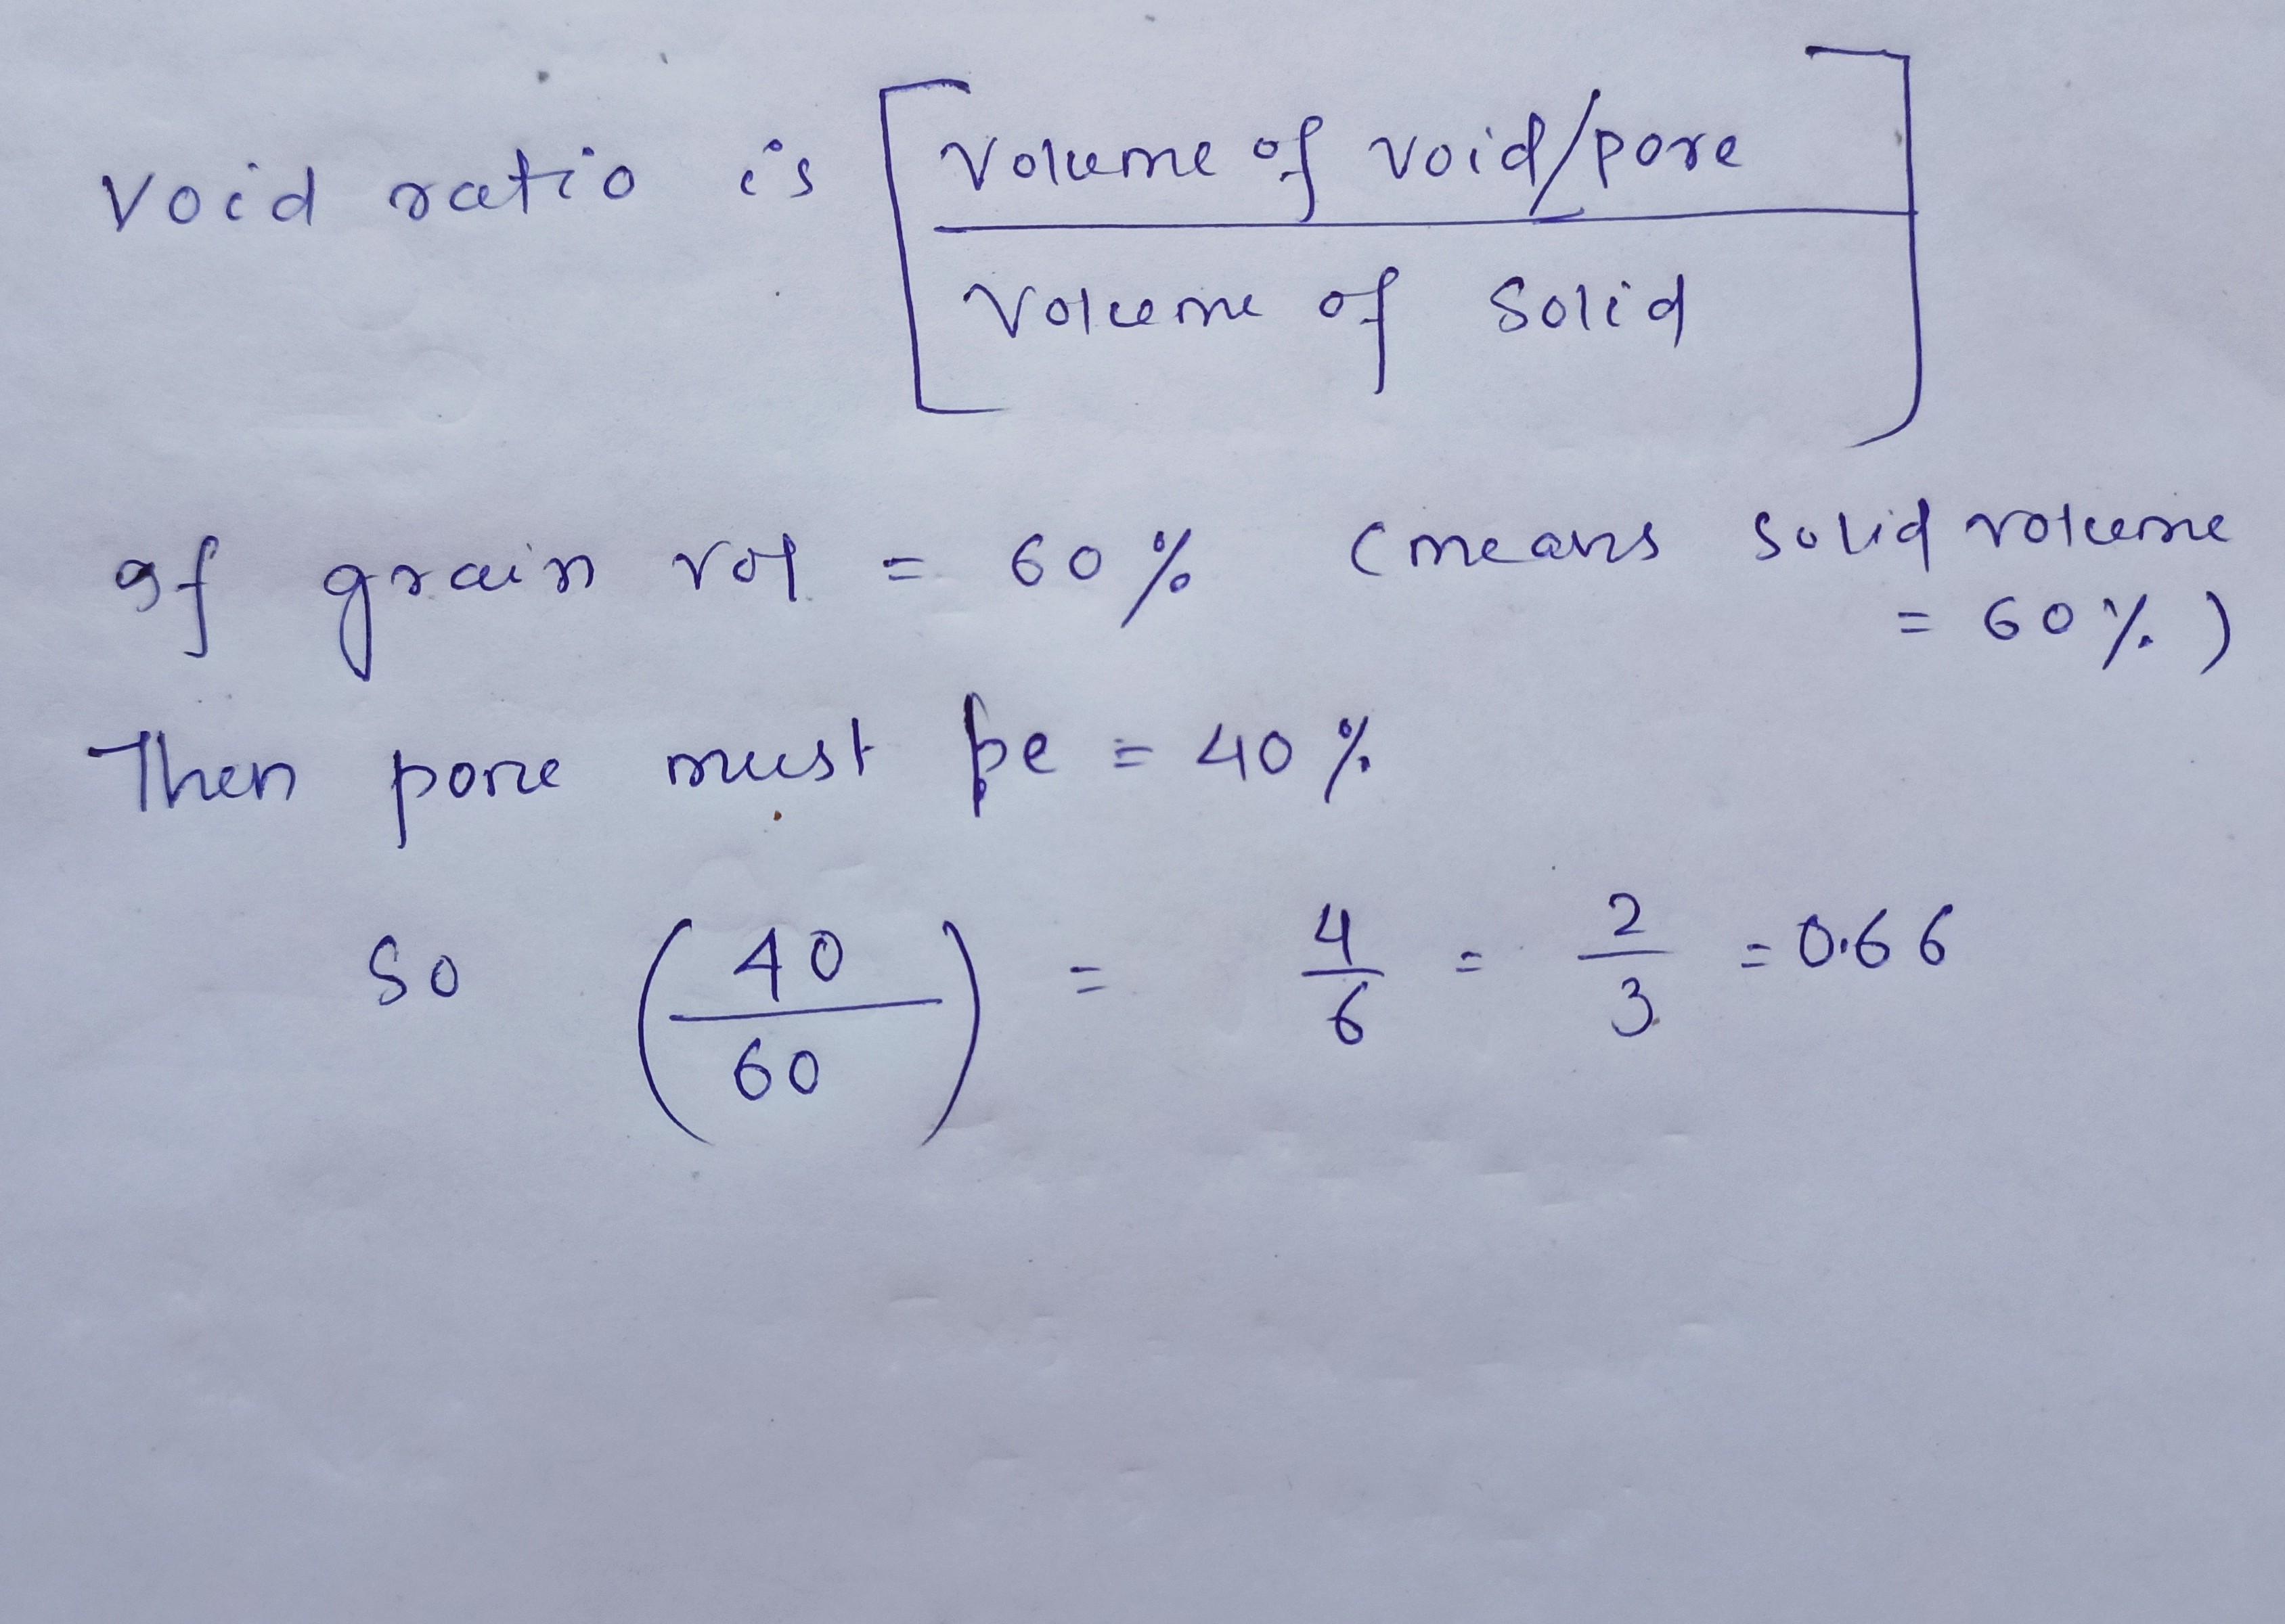 Void ratio is [Volume of void/pore
Volume of Solid]
If grain vol = 60% (means solid volume
= 60%)
Then pore must be = 40%
So (40/60) = 4/6 = 2/3 = 0.66